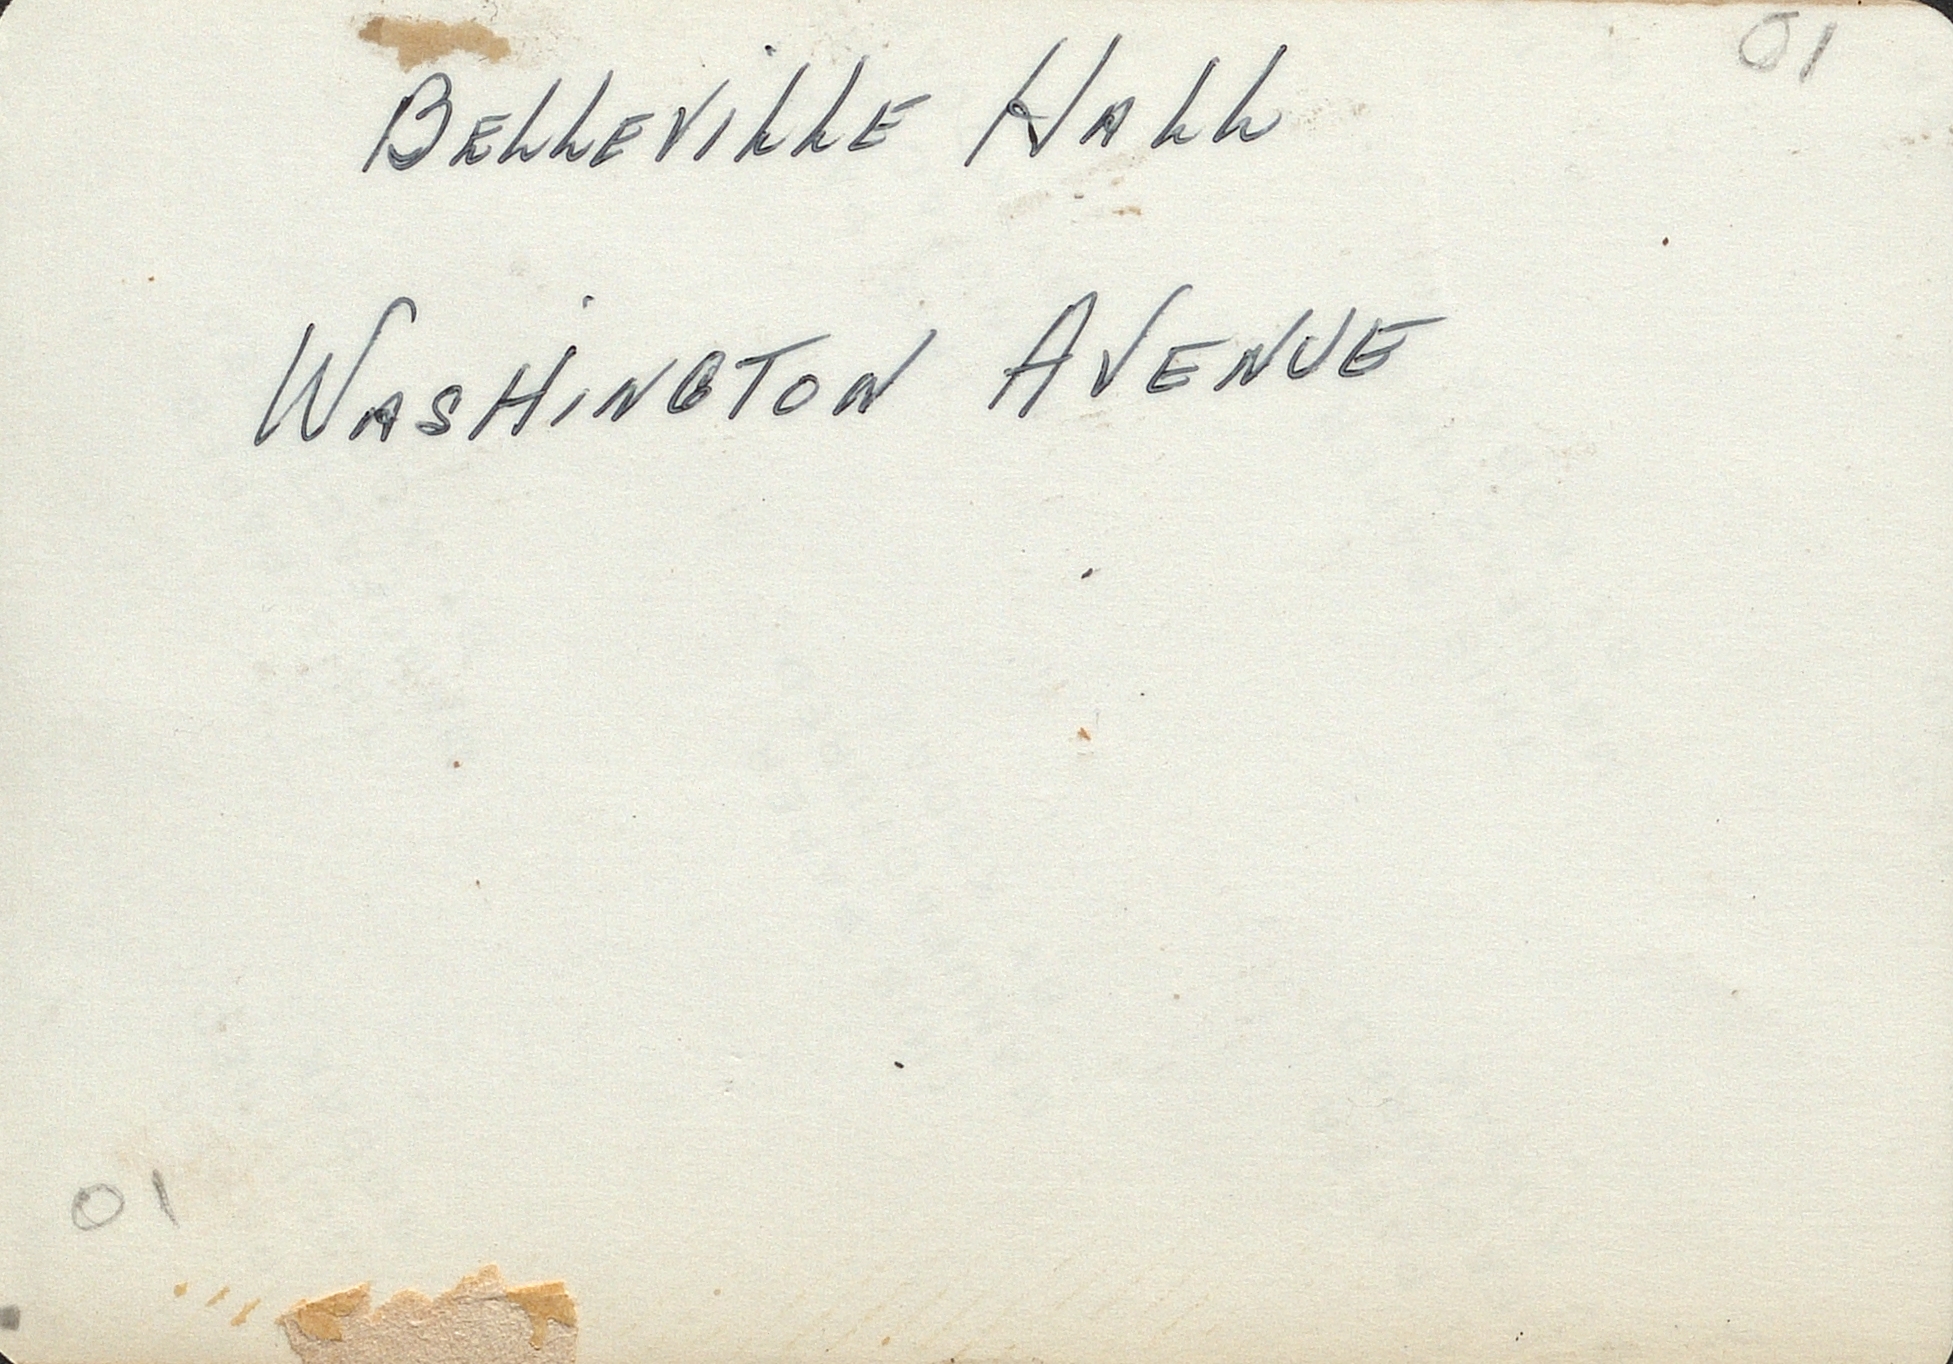 01
BELLEViLLE HALL
WASHiNGTON AVENUE
01